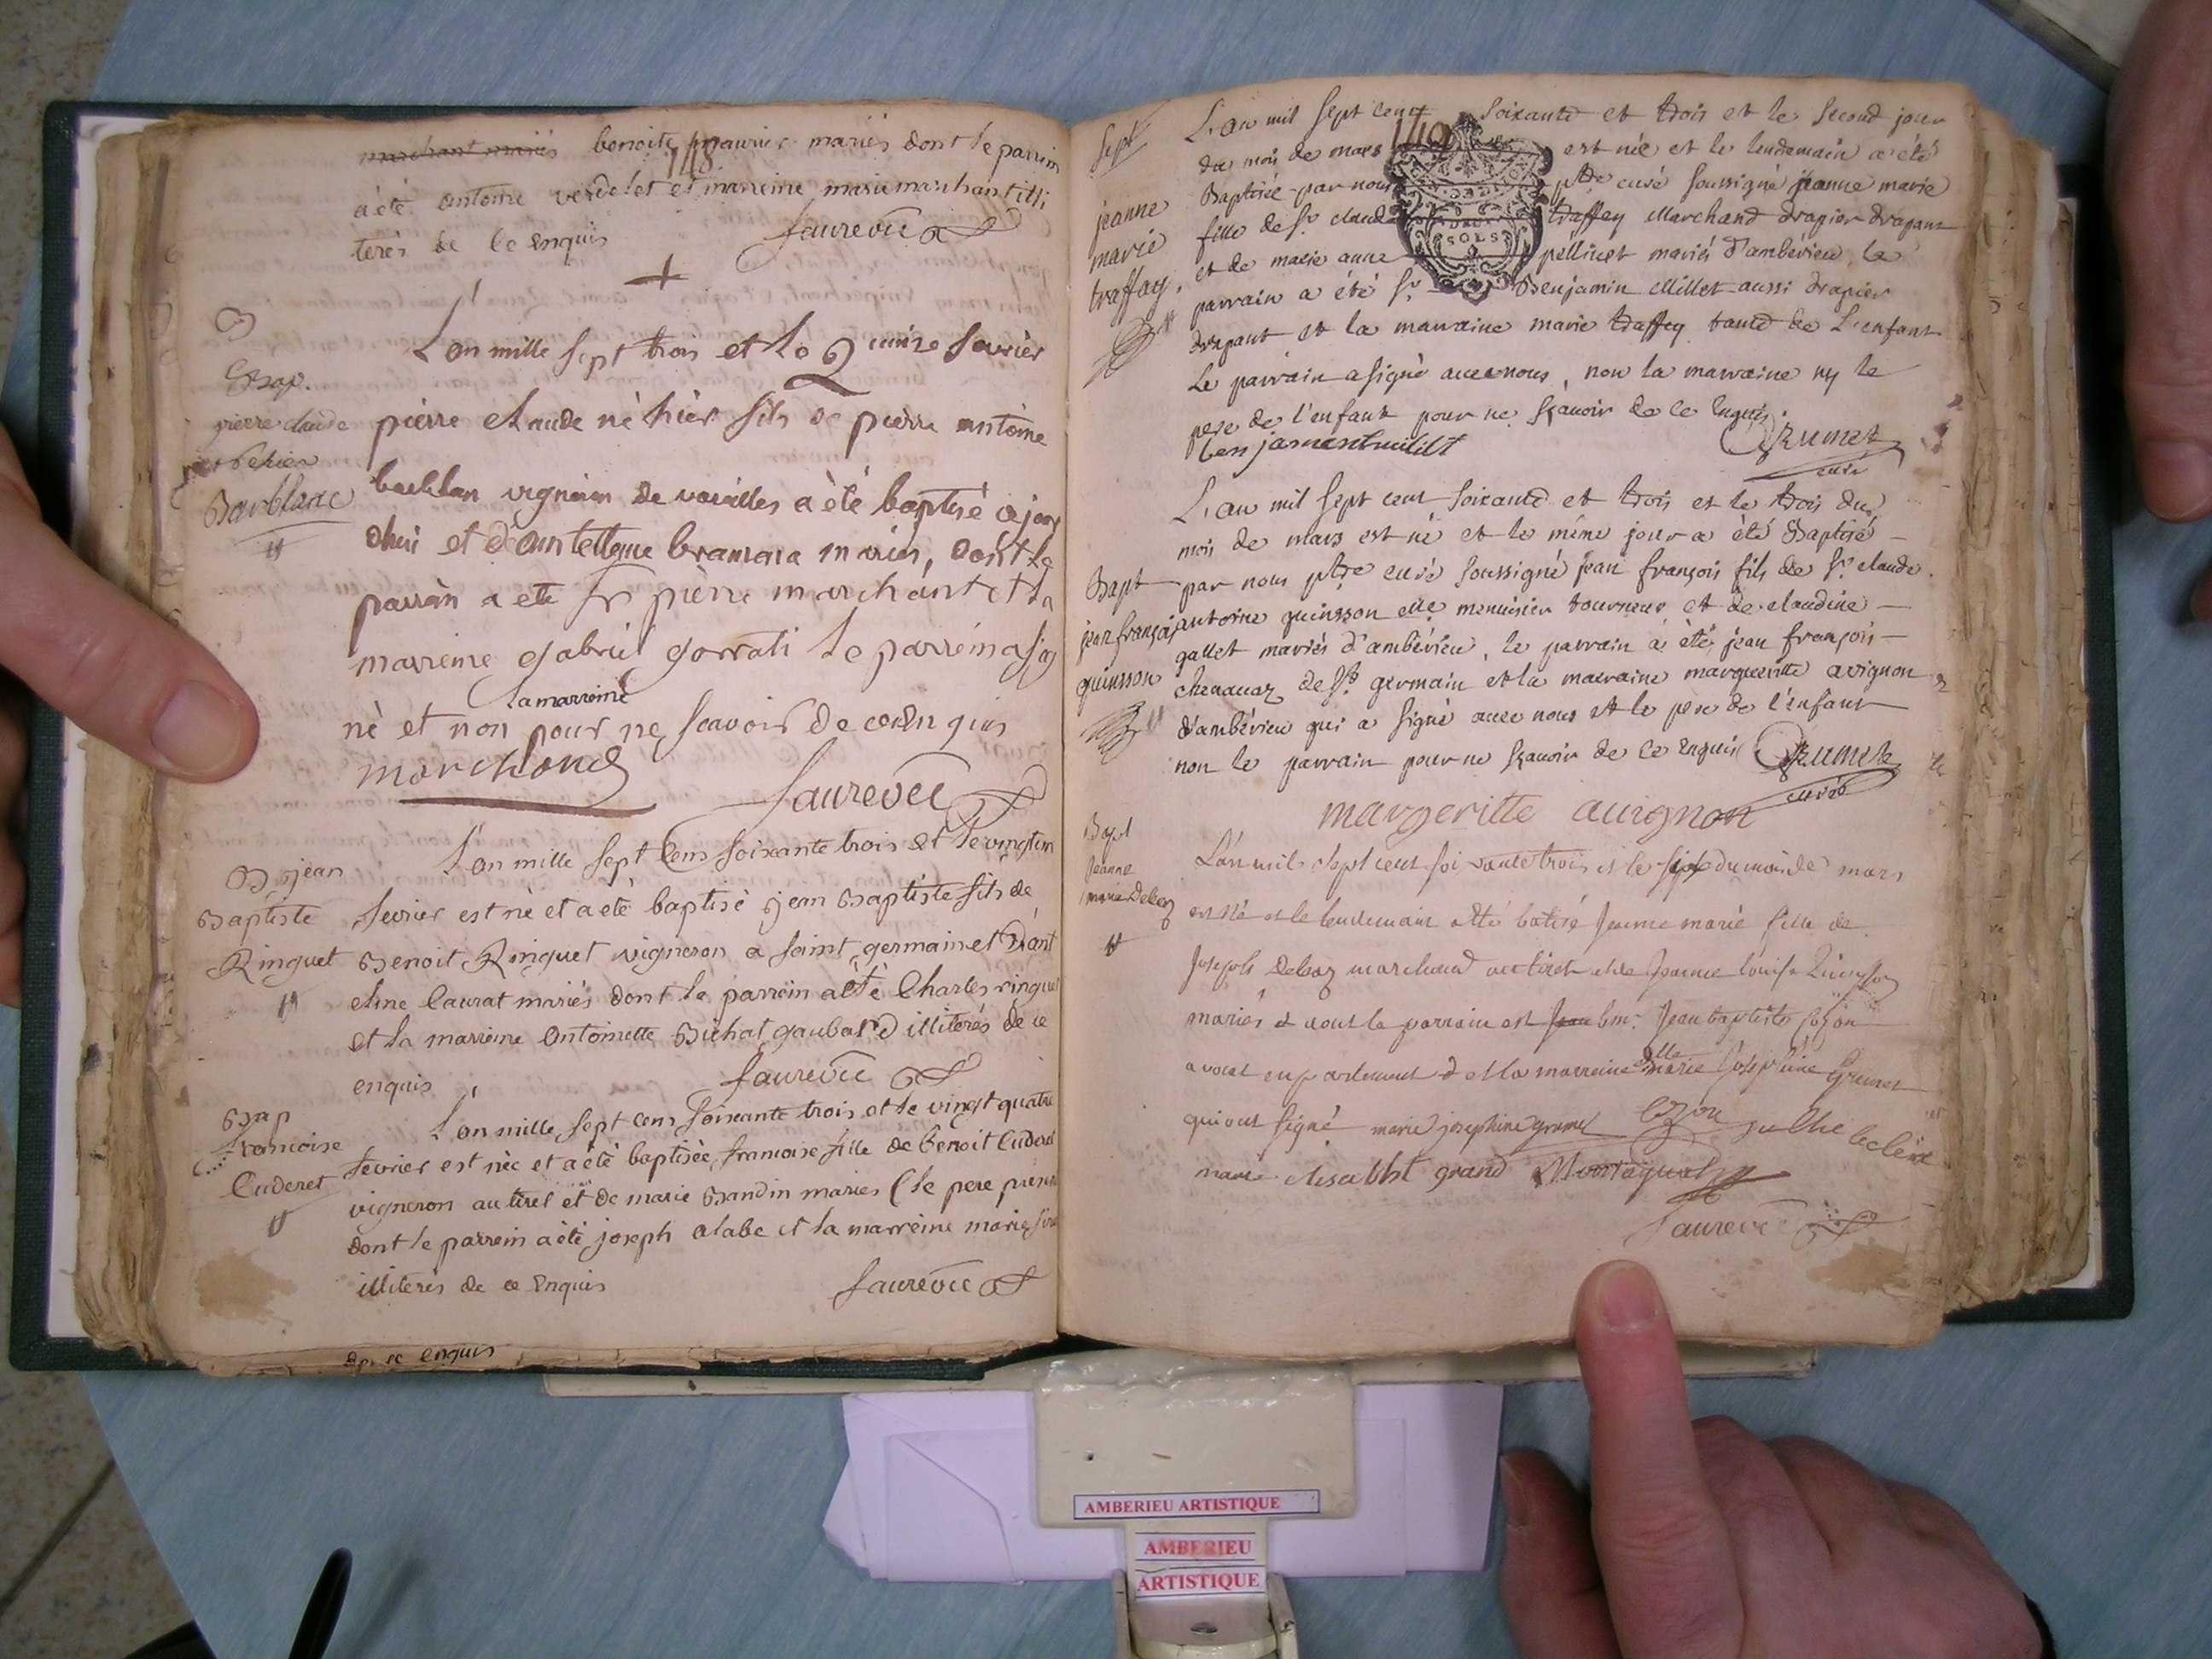 marchant mariés benoite maurier mariés dont le parrin
148
a été antoine verdelet et marreine marie marchant illi
terés de ce enquis faurevic
L'an mille sept trois et le Quinze fevrier
Bap.
pierre claude
Barblanc
pierre claude né hier fils de pierre antoine
vigneron de vareilles a èté baptisé ajour
dhui et mariés, dont le
parrain a eté sr pierre marchant et la
marreine gabriel gorrati le parrein a sig
la marreine
né et non pour ne scavoir de ce enquis
marchand
faurevic
B jean
Baptiste
Ringuet
L'an mille sept Cens soixante trois et le vingt un
fevrier est né et a èté baptisé jean Baptiste fils de
Benoit Ringuet vigneron a saint germain et d'ant
elme Caurat mariés dont le parrein a été Charles ringuet
et la marreine Antoinette Bichat gaubard illiterés de ce
enquis faurevic
Bap
francoise
Cuderet
L'an mille sept cens soixante trois et le vingt quatre
fevrier est née et a èté baptisée francoise fille de benoit Cuderet
vigneron au tiret et de marie Bandin mariés (le pere present
dont le parrein a èté joseph alabe et la marreine marie
illiterés de ce enquis faurevic
de ce enquis
149
Bapt
jeanne
marie
traffay
L'an mil sept cent soixante et trois et le second jour
du mois de mars est née et le lendemain a été
Baptisée par nous ptre curé soussigné jeanne marie
fille de sr claude traffey Marchand drapier drapant
et de marie anne pellicet mariés d'ambérieu, le
parrain a été sr Benjamin Millet aussi drapier
drapant et la marraine marie traffey tante de L'enfant
Le parrain a signé avec nous, non la marraine ny le
pere de l'enfant pour ne sçavoir de ce Enquis.
Grumet
curé
DEUX
SOLS
Bapt
jean françois
quinsson
L'an mil sept cent soixante et trois et le trois du
mois de mars est né et le même jour a été Baptisé
par nous ptre curé soussigné jean françois fils de sr claude
antoine quinsson me menuisier tourneur et de claudine
gallet mariés d'ambérieu, le parrain a été jean françois
chenavaz de st germain et la marraine margueritte avignon
d'ambérieu qui a signé avec nous et le pere de l'enfant
non le parrain pour ne sçavoir de ce Enquis Grumet
curé
margeritte avignon
Bapt
Jeanne
marie
L'an mil sept cent soixante trois et le six du mois de mars
est né et le lendemain a été batisé Jeanne marie fille de
Joseph marchand au tiret et de Jeanne louise
mariés et dont le parrain est Jean bme. Jean baptiste
avocat en parlement et la marreine dlle marie Josephine Grumet
qui ont signé marie josephine grumet
marie elisabht grand Montagnat
faurevic
AMBERIEU ARTISTIQUE
AMBERIEU
ARTISTIQUE